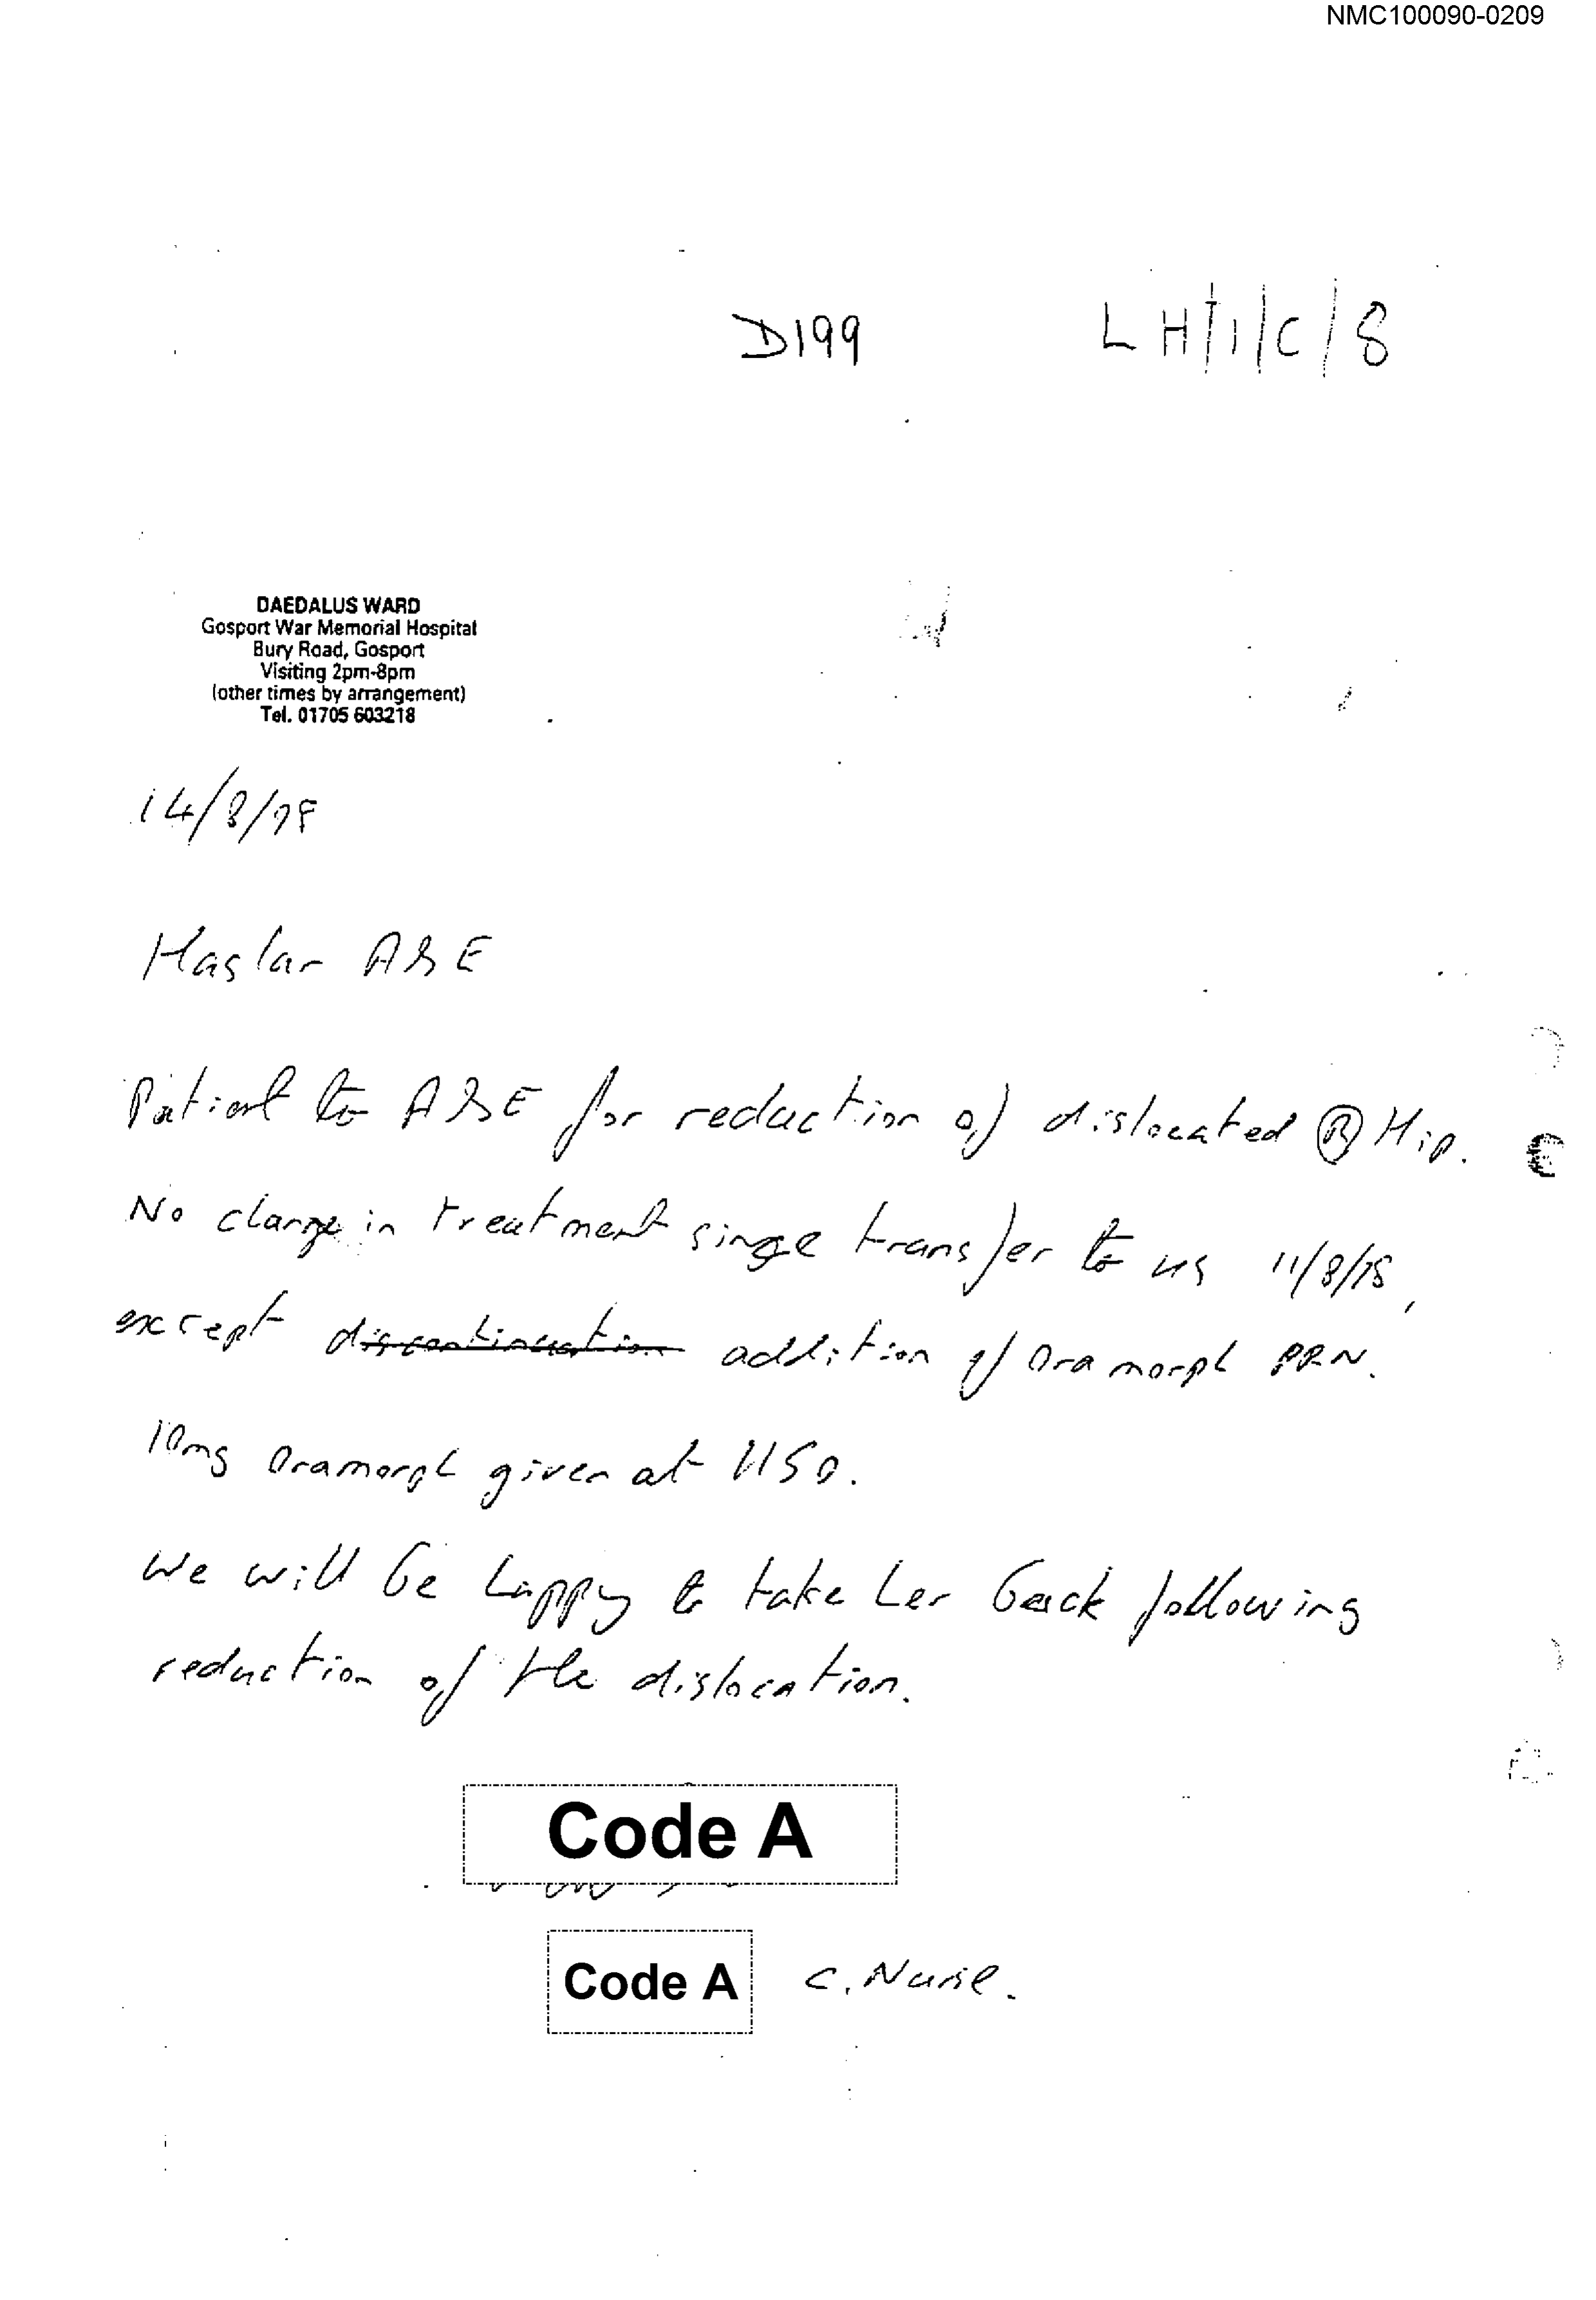 NMC100090-0209
D199 LH/1/C/8
DAEDALUS WARD
Gosport War Memorial Hospital
Bury Road, Gosport
Visiting 2pm-8pm
(other times by arrangement)
Tel. 01705 603218
14/8/98
Haslar A&E
Patient to A&E for reduction of dislocated Ⓡ Hip.
No change in treatment since transfer to us 11/8/98,
except discontinuation addition of Oramorph PRN.
10mg Oramorph given at 1150.
We will be happy to take her back following
reduction of the dislocation.
Code A
Code A C. Nurse.